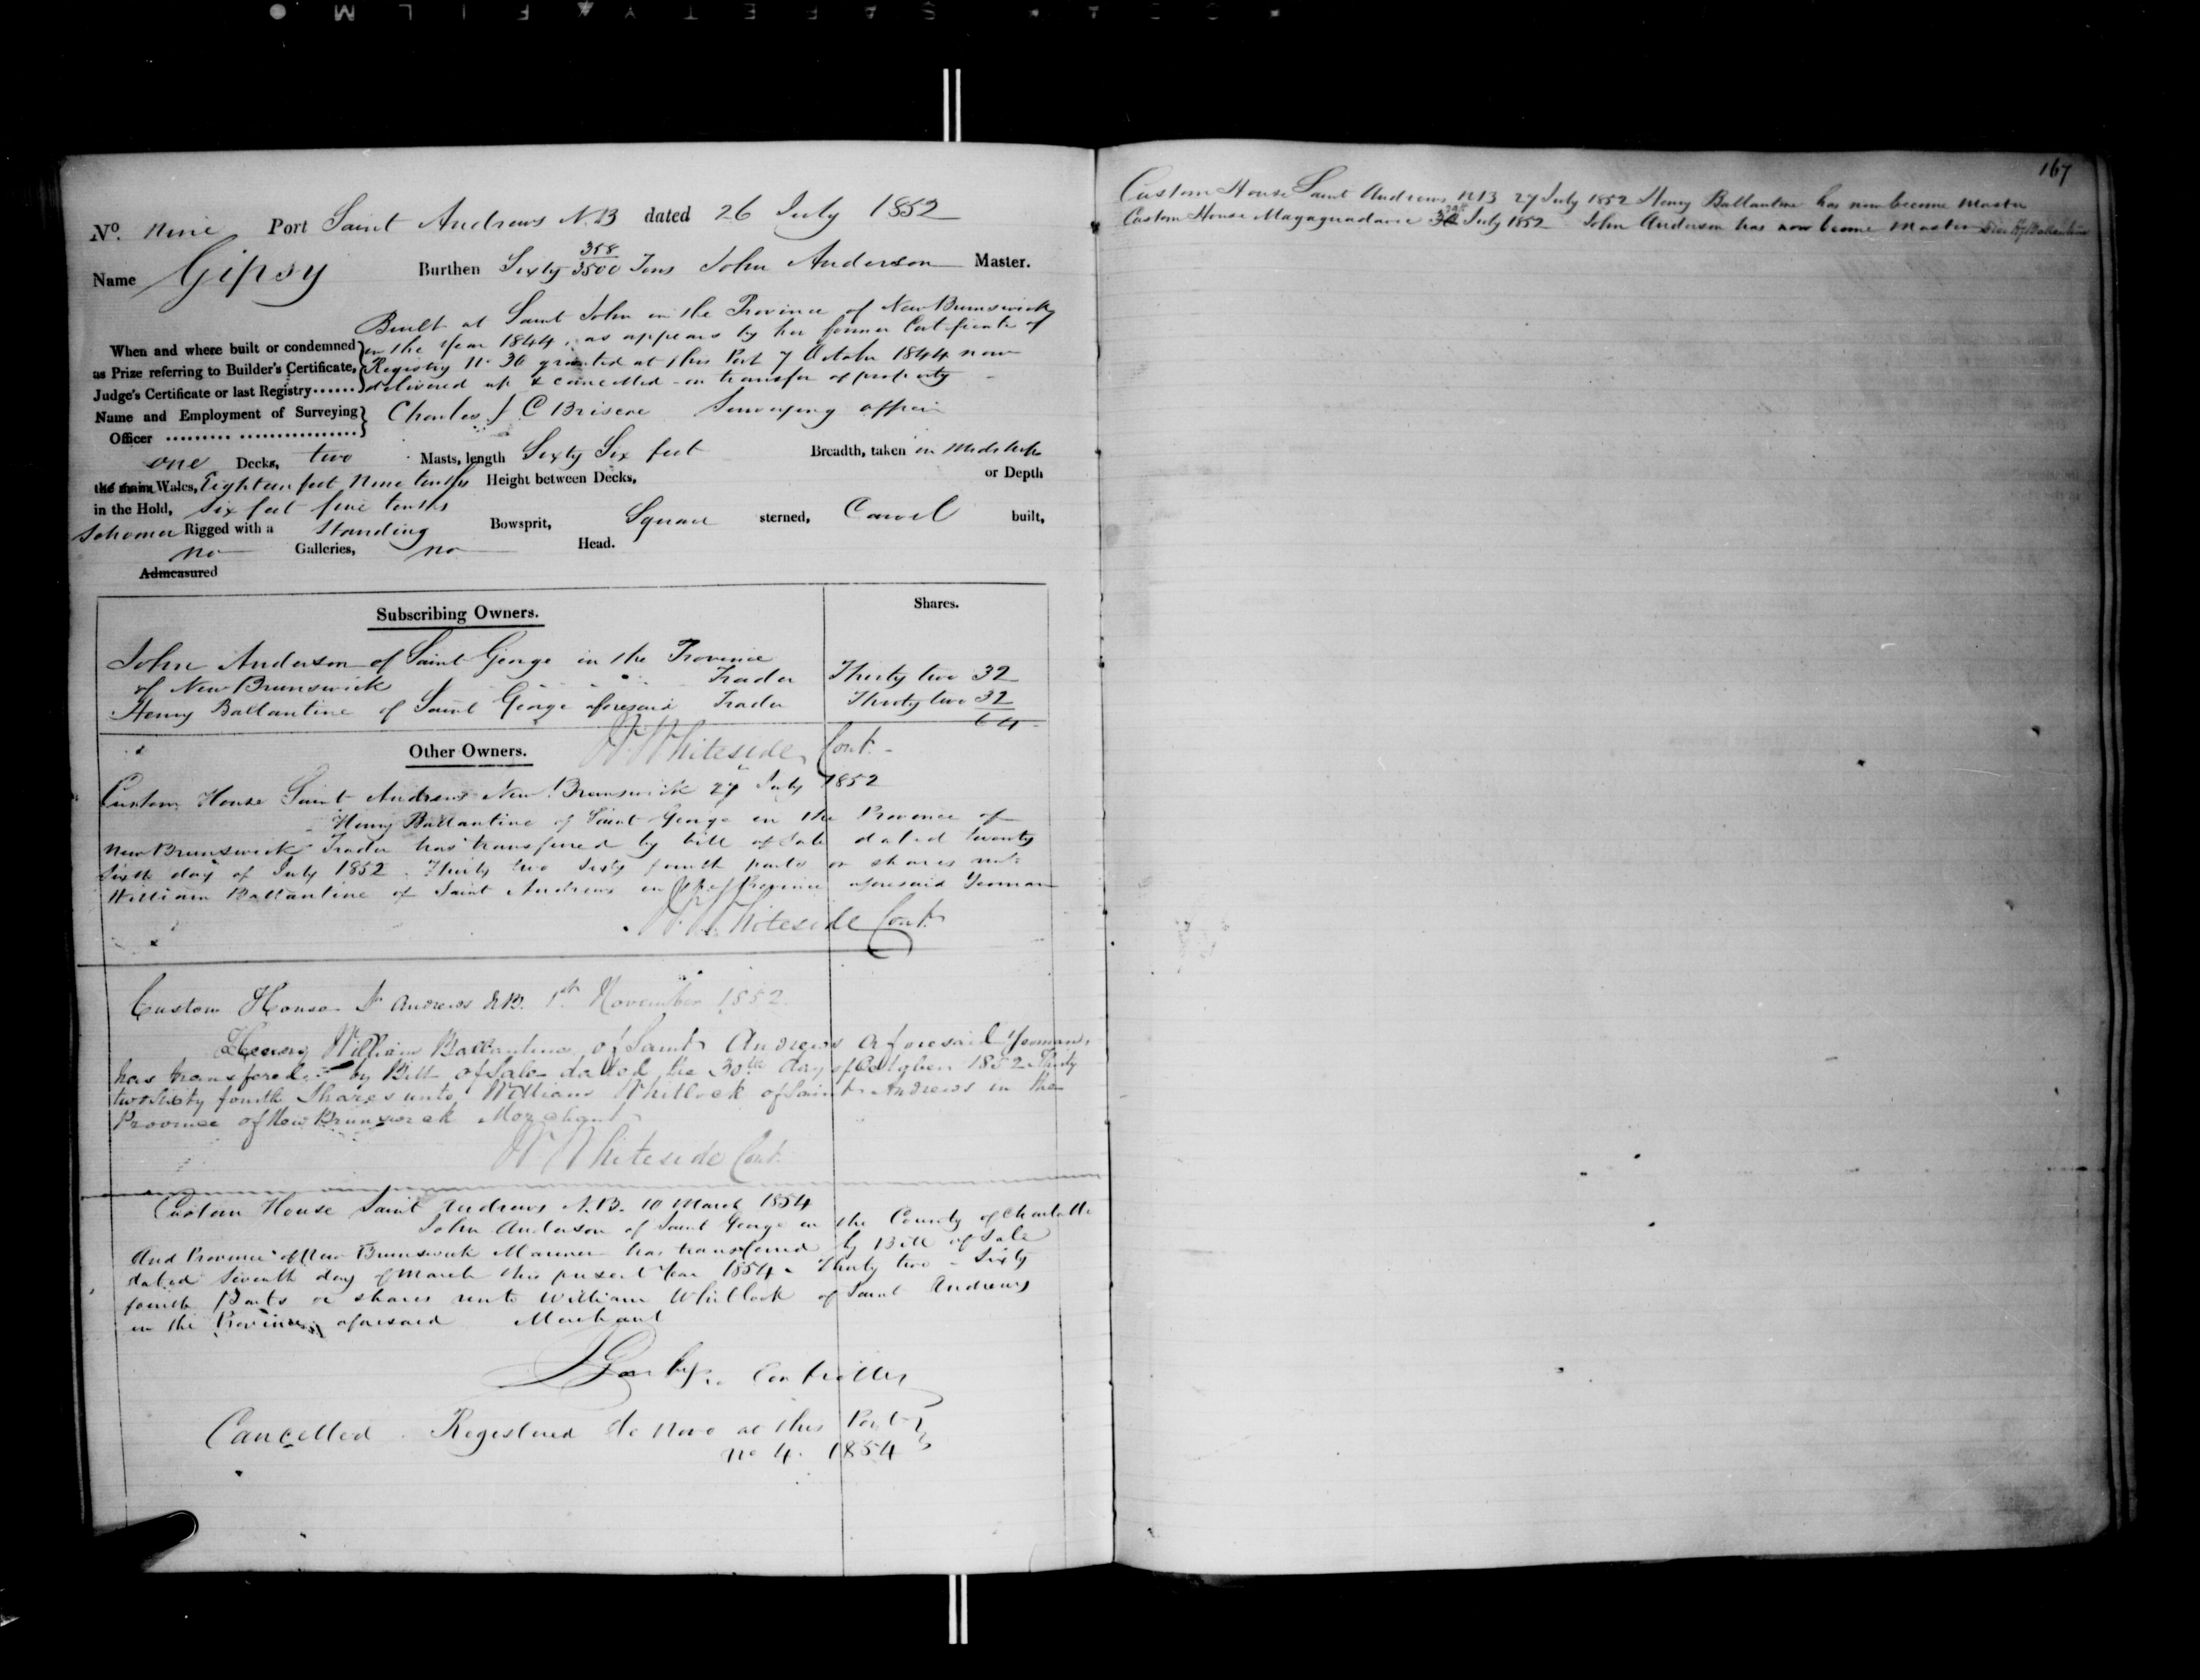 No. Nine Port Saint Andrews N.B dated 26 July 1852
Name Gipsy Burthen Sixty 358/3500 Tons John Anderson Master.
Built at Saint John in the Province of New Brunswick
When and where built or condemned in the Year 1844, as appears by her former Certificate of
as Prize referring to Builder's Certificate, Registry No 30 granted at this Port 7 October 1844 now
Judge's Certificate or last Registry...... delivered up & cancelled on transfer of property
Name and Employment of Surveying Charles J C Briscoe Surveying officer
Officer
one Decks, two Masts, length Sixty Six feet Breadth, taken in Midships
the main Wales, Eighteen feet Nine tenths Height between Decks, or Depth
in the Hold, Six feet five tenths
Schooner Rigged with a Standing Bowsprit, Square sterned, Carvel built,
no Galleries, no Head.
Admeasured
Subscribing Owners. Shares.
John Anderson of Saint George in the Province
of New Brunswick Trader Thirty two 32
Henry Ballantine of Saint George aforesaid Trader Thirty two 32
64
Other Owners. W Whiteside Cont.
Custom House Saint Andrews New Brunswick 27 July 1852
Henry Ballantine of Saint George in the Province of
New Brunswick Trader has transferred by bill of Sale dated Twenty
Sixth day of July 1852. Thirty two Sixty fourth parts or shares unto
William Ballantine of Saint Andrews in the Province aforesaid Yeoman
W Whiteside Cont.
Custom House St Andrews N.B. 1st November 1852.
Henry William Ballantine of Saint Andrews aforesaid Yeoman,
has transfered by Bill of Sale dated the 30th day of October 1852 Thirty
two Sixty fourth Shares unto William Whitlock of Saint Andrews in the
Province of New Brunswick Merchant
W Whiteside Cont.
Custom House Saint Andrews N.B. 10 March 1854
John Anderson of Saint George in the County of Charlotte
and Province of New Brunswick Mariner has transferred by Bill of Sale
dated Seventh day of March this present Year 1854 Thirty two Sixty
fourth Parts or shares unto William Whitlock of Saint Andrews
in the Province aforesaid Merchant
Controller
Cancelled. Registered de Novo at this Port
No 4. 1854
167
Custom House Saint Andrews NB 27 July 1852 Henry Ballantine has now become Master
Custom House Magaguadavic July 1852 John Anderson has now become Master